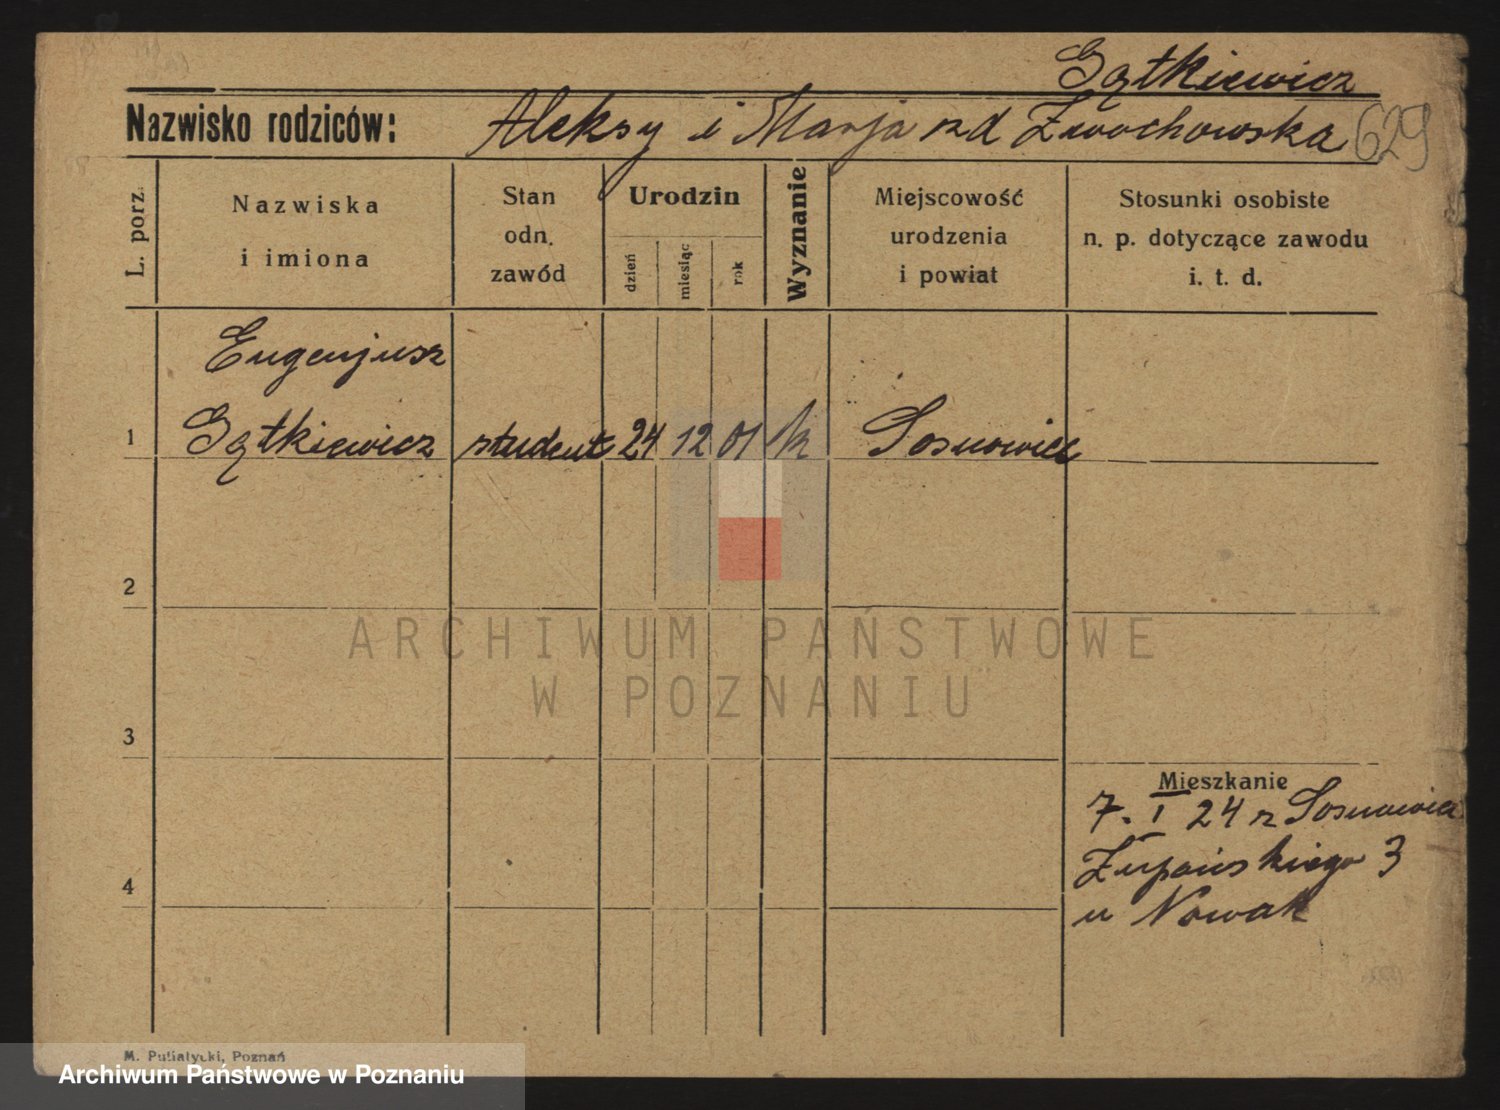 Gątkiewicz
Nazwisko rodziców: Aleksy i Marja zd Żwochowska 629
L. porz.
Nazwiska
i imiona
Stan
odn.
zawód
Urodzin
dzień
miesiąc
rok
Wyznanie
Miejscowość
urodzenia
i powiat
Stosunki osobiste
n. p. dotyczące zawodu
i. t. d.
Eugenjusz
1 Gątkiewicz student 24 12 01 k Sosnowiec
2
ARCHIWUM PAŃSTWOWE
W POZNANIU
3
Mieszkanie
7. I 24 z Sosnowiec
Żupańskiego 3
4
u Nowak
M. Putiatycki, Poznań
Archiwum Państwowe w Poznaniu